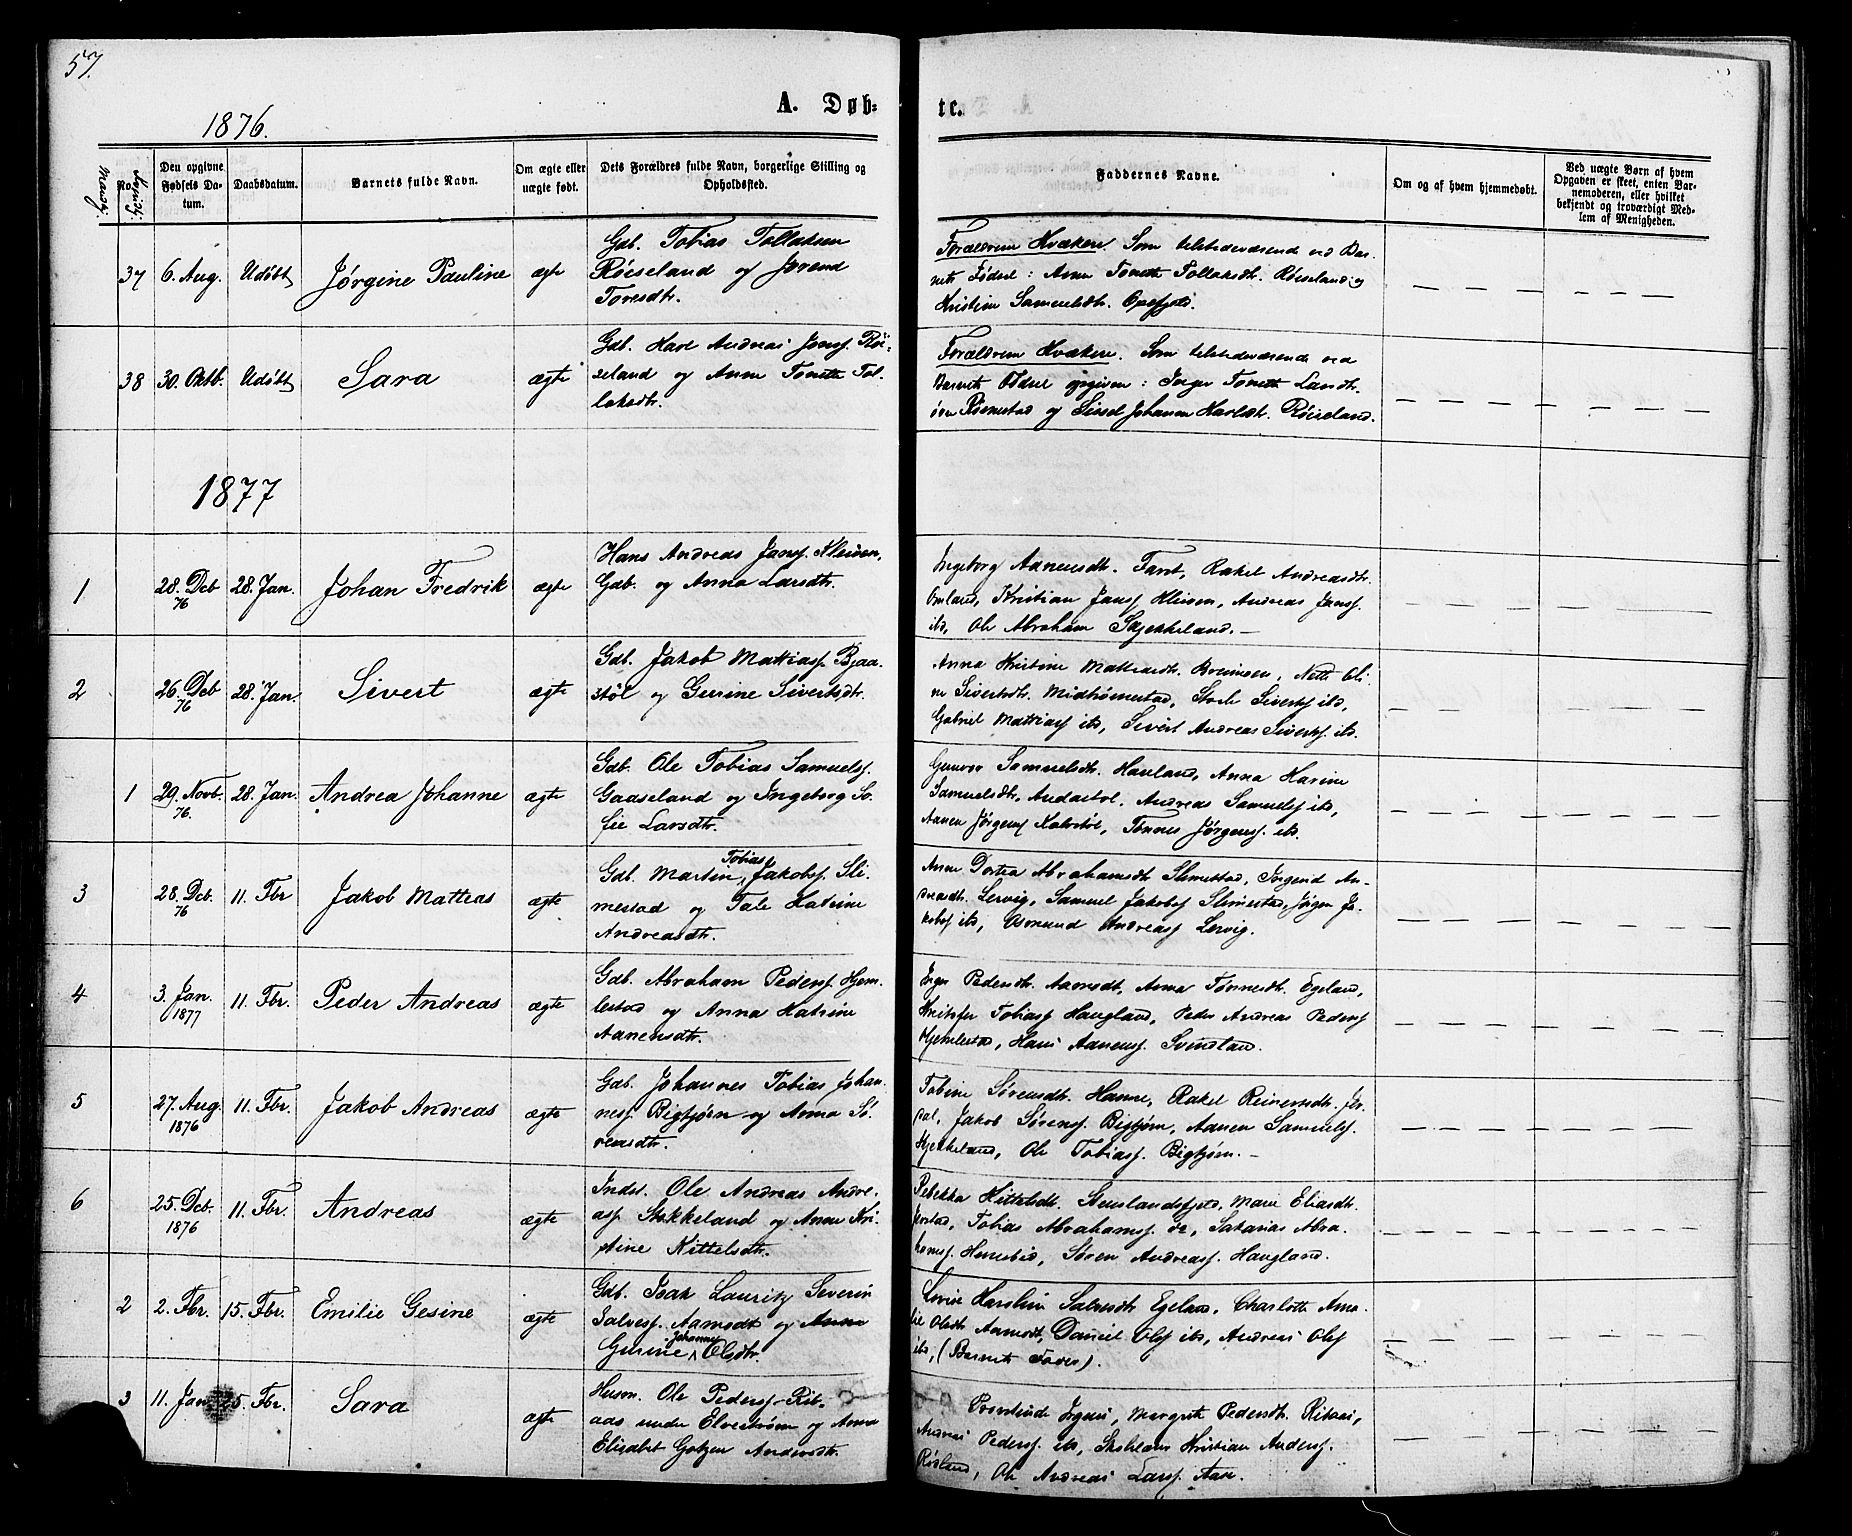 57.
1876.
A. Døb-
te.
Mandkj.
No.
Kvindkj.
Den opgivne Fødsels Da-
tum.
Daabsdatum.
Barnets fulde Navn.
Om ægte eller
uægte født.
Dets Forældres fulde Navn, borgerlige Stilling og
Opholdsted.
Faddernes Navne.
Om og af hvem hjemmedøbt.
Ved uægte Børn af hvem
Opgaven er skeet, enten Bar-
nemoderen, eller hvilket
bekjendt og troværdigt Med-
lem af Menigheden.
37 6. Aug. Udøbt Jørgine Pauline ægte
Gdb. Tobias Tollaksen
Røiseland og Jorend
Toresdtr.
Forældrene Kvækere. Som tilstedeværende ved Bar-
nets Fødsel: Anne Tonette Tollaksdtr. Røiseland og
Kristine Samuelsdtr. Opofjeld.
38 30. Oktb. Udøbt Sara ægte
Gdb. Karl Andreas Jonsf. Røi-
seland og Anne Tonette Tol-
laksdtr.
Forældrene Kvækere. Som tilstedeværende ved
Barnets Fødsel opgiven: Inger Tonette
og Sissel Johanne Karlsdtr. Røiseland.
1877
1 28. Deb 76 28. Jan. Johan Fredrik ægte
Hans Andreas Jansf. Kleiven,
Gdb. og Anna Larsdtr.
Ingeborg Aanensdtr. Rakel Andreasdtr.
Omland, Kristian Jansf Kleiven, Andreas Jansf.
ibd, Ole Abraham Skjekkeland. –
2 26. Deb 76 28. Jan. Sivert ægte
Gdb. Jakob Mattiasf. Bjaa-
støl og Gurine Sivertsdtr.
Anna Kristine Mattiasdtr. Nette Oli-
ne Sivertsdtr. Midtrømestad, Sivertsf ibd,
Gabriel Mattiasf ibd, Sivert Andreas Sivertsf. ibd.
1 29. Novb. 76. 28. Jan. Andrea Johanne ægte
Gdb. Ole Tobias Samuelsf.
Gaaseland og Ingeborg So-
fie Larsdtr.
Gunvor Samuelsdtr. Hauland, Anna Karine
Samuelsdtr, Andreas Samuelsf ibd,
Aanen Jørgensf Tønnes Jørgensf. ibd.
3 28. Deb. 76 11. Fbr Jakob Matteas ægte
Gdb. Martin Tobias Jakobsf. Sli-
mestad og Tale Katrine
Andreasdtr.
Anne Dortea Abrahamsdtr Slimestad, Ingerid An-
dreasdtr. Lervig, Samuel Jakobsf Slimestad, Jørgen Ja-
kobsf ibd, Osmund Andreasf Lervig.
4 3. Jan. 1877 11. Fbr. Peder Andreas ægte
Gdb. Abraham Pedersf. Hjem-
lestad og Anna Katrine
Aanensdtr.
Inger Pedersdtr. Aamodt, Anna Tønnesdtr. Egeland,
Kristofer Tobiasf Haugland, Peder Andreas Pedersf
Hjemlestad, Hans Aanensf. Svindland.
5 27. Aug. 1876 11. Fbr. Jakob Andreas ægte
Gdb. Johannes Tobias Johan-
nesf. Bigtjørn og Anna Sø-
rensdtr.
Tobine Sørensdtr. Rakel Reinertsdtr.
Jakob Sørensf. Bigtjørn, Aanen Samuelsf.
Skjekkeland, Ole Tobiasf. Bigtjørn. –
6 25. Deb. 1876 11. Fbr. Andreas ægte
Inds. Ole Andreas Andre-
asf Stokkeland og Anne Kri-
stine Kittelsdtr.
Rebekka Kittelsdtr. Marie Eliasdtr.
Tobias Abrahamsf. Sakarias Abra-
hamsf. Søren Andreasf. Haugland.
2 2. Fbr. 15. Fbr. Emilie Gesine ægte
Gdb. Isak Lauritz Severin
Salvesf. Aamodt og Anna
Gurine Johanne Olsdtr.
Salvesdtr Egeland, Charlotte Ama-
lie Olsdtr Aamodt, Daniel Olsf ibd, Andreas Olsf
ibd, (Barnets Fader).
3 11. Jan. 25. Fbr. Sara ægte
Husm. Ole Pedersf. Rib-
aas under Elvestrøm og Anna
Elisabet Gotzen Andersdtr.
Margrete Pedersdtr. Ribaas,
Andreas Pedersf. ibd, Kristian Andersf.
Risland, Ole Andreas Larsf. Aase.